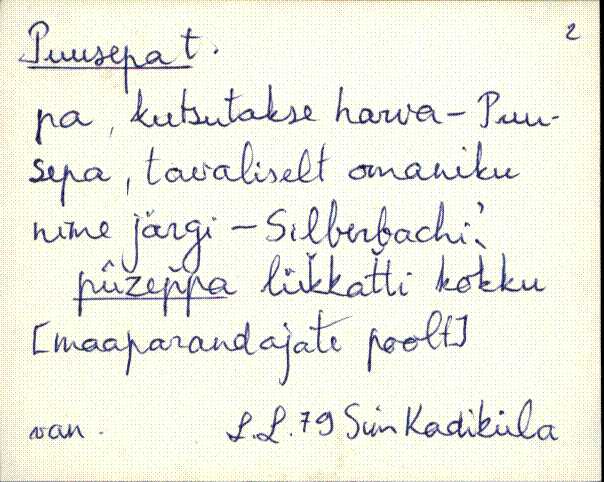 2
Puusepa t.
pa, kutsutakse harva – Puu-
sepa, tavaliselt omaniku
nime järgi – Silberbachi.
pûzep̌pa lük̆kat̆ti kokku
[maaparandajate poolt]
van. L.L. 79 Sim Kadiküla